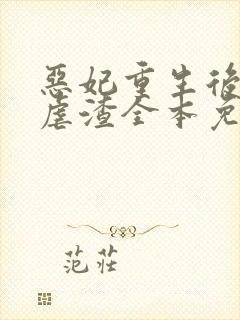 惡妃重生後
虐渣全本免
范莊